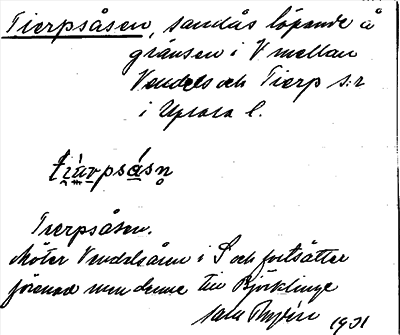 Tierpsåsen, sandås löpande å
gränsen i V mellan
Vendels och Tierp s:r
i Upsala l.
Tierpsåsen.
Möter Vendelsåsen i S och fortsätter
förenad med denne till Björklinge
1901